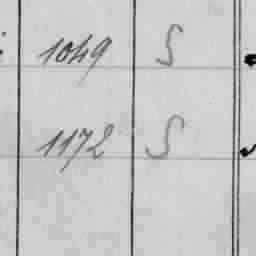 1049 S
1172 S